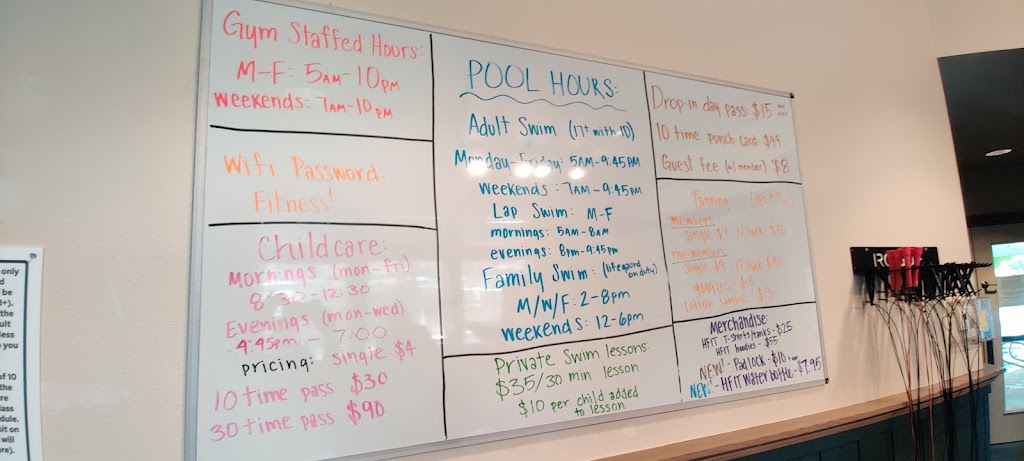 Gym Staffed Hours:
M-F: 5AM-10PM
weekends: 7AM-10PM
Wifi Password:
Fitness!
Childcare:
Mornings (mon-fri)
8:30-12:30
Evenings (mon-wed)
4:45pm - 7:00
pricing: single $4
10 time pass $30
30 time pass $90
POOL HOURS:
Adult Swim (17+ with ID)
Monday-Friday: 5AM-9:45PM
weekends: 7AM-9:45PM
Lap Swim: M-F
mornings: 5AM-8AM
evenings: 8pm-9:45pm
Family Swim: (lifeguard
on duty)
M/W/F: 2-8pm
weekends: 12-6pm
Private Swim lessons:
$35/30 min lesson
$10 per child added
to lesson
Drop-in day pass $15
10 time punch card $99
Guest fee (w/ member) $8
Tanning
members:
single $7 12 pack $70
non-members
single $9 12 pack $90
goggles: $5
lotion sample: $5
Merchandise:
HFIT T-shirts/tanks - $25
HFIT hoodies - $55
NEW! - Padlock - $10
NEW! - HFIT Water bottle - $7.95
IRO
only
d
be
+).
the
ult
less
you
of 10
the
re
lass
dule.
sit on
will
re).